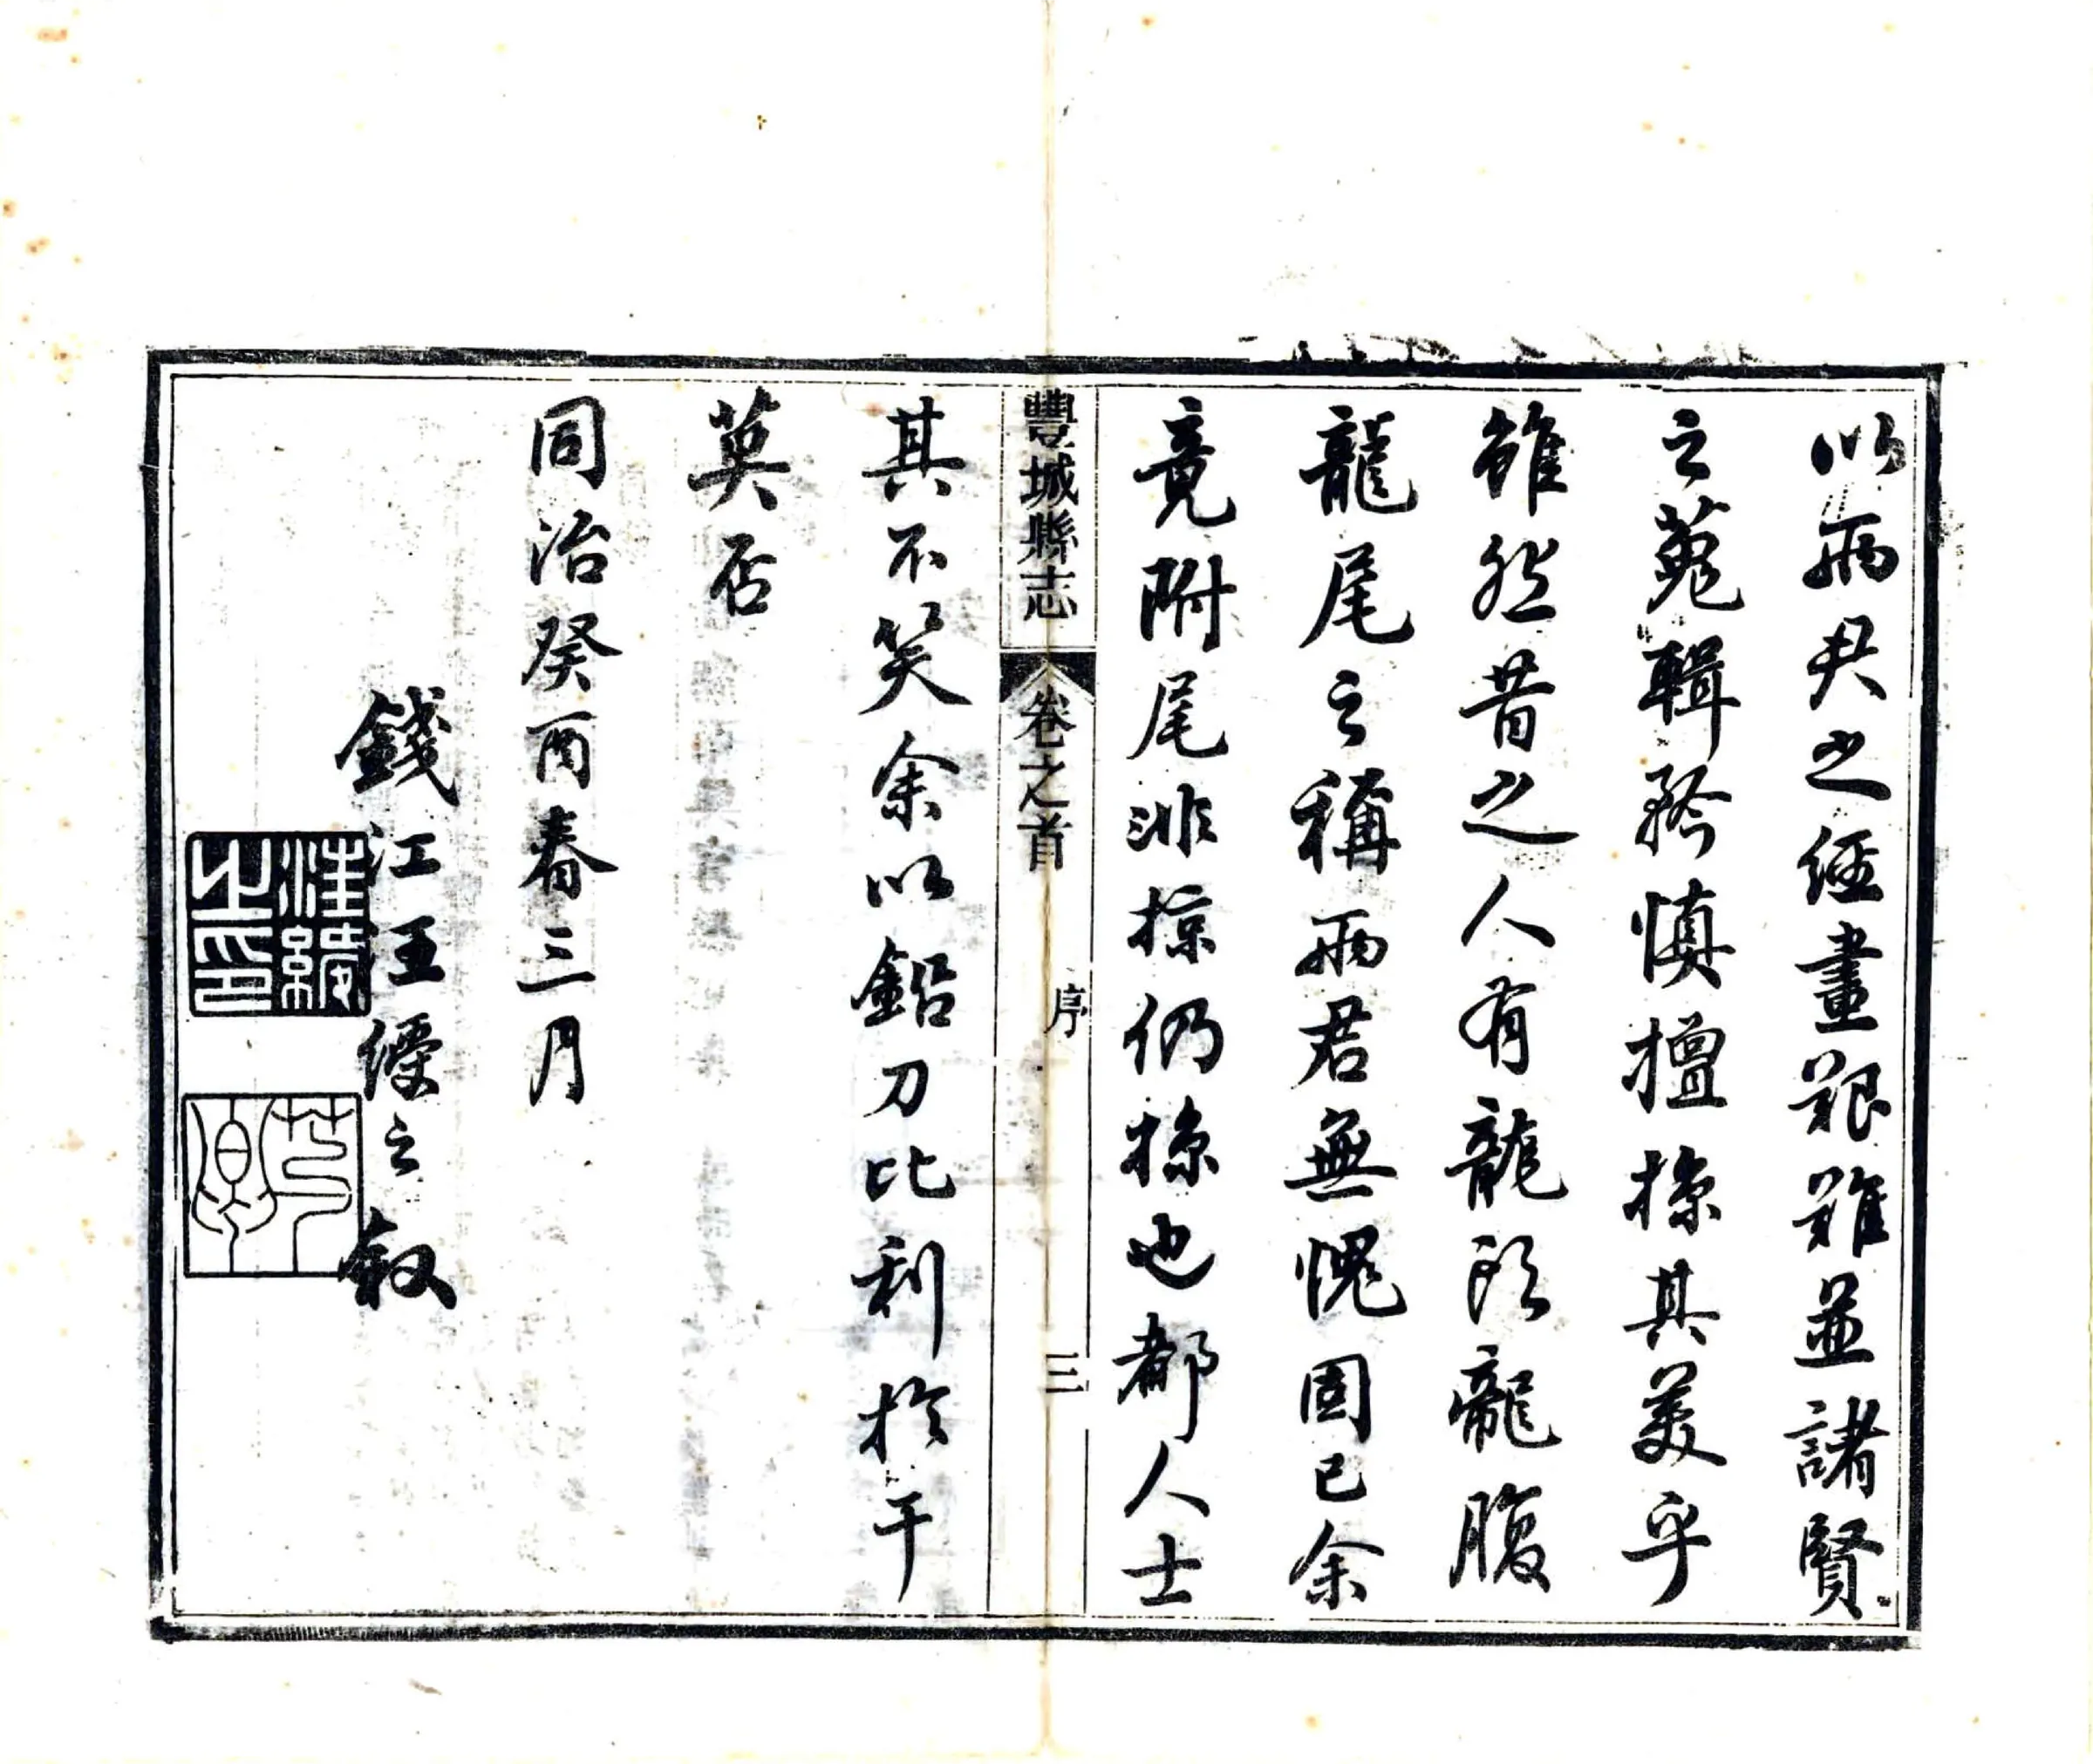 以兩尹之經畫艱難並諸賢
之蒐輯矜慎擅掠其美乎
雖然昔之人有龍頭龍腹
龍尾之稱兩君無愧固已余
竟附尾非掠仍掠也都人士
豐城縣志 卷之首 序 三
其不笑余以鉛刀比利於干
莫否
同治癸酉春三月
錢江王綬之叙